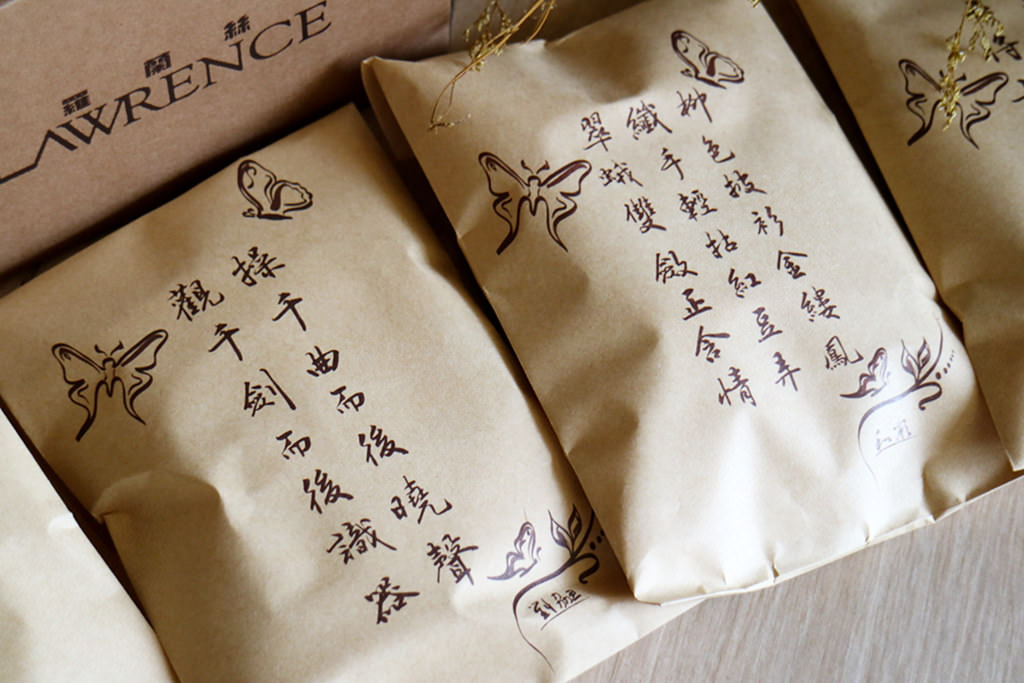 羅蘭絲
LAWRENCE
操千曲而後曉聲
觀千劍而後識器
劉勰
柳色披衫金縷鳳
纖手輕拈紅豆弄
翠蛾雙斂正含情